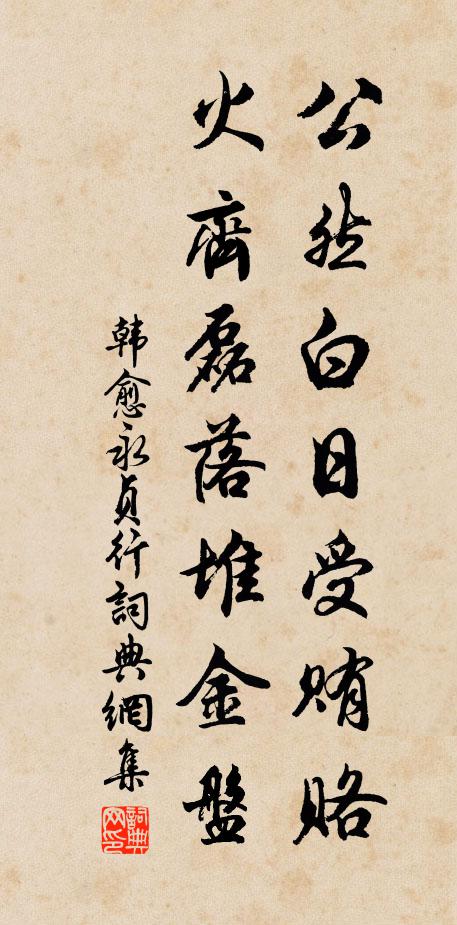 公然白日受賄賂
火齊磊落堆金盤
韩愈永貞行詞典網集
詞典网印